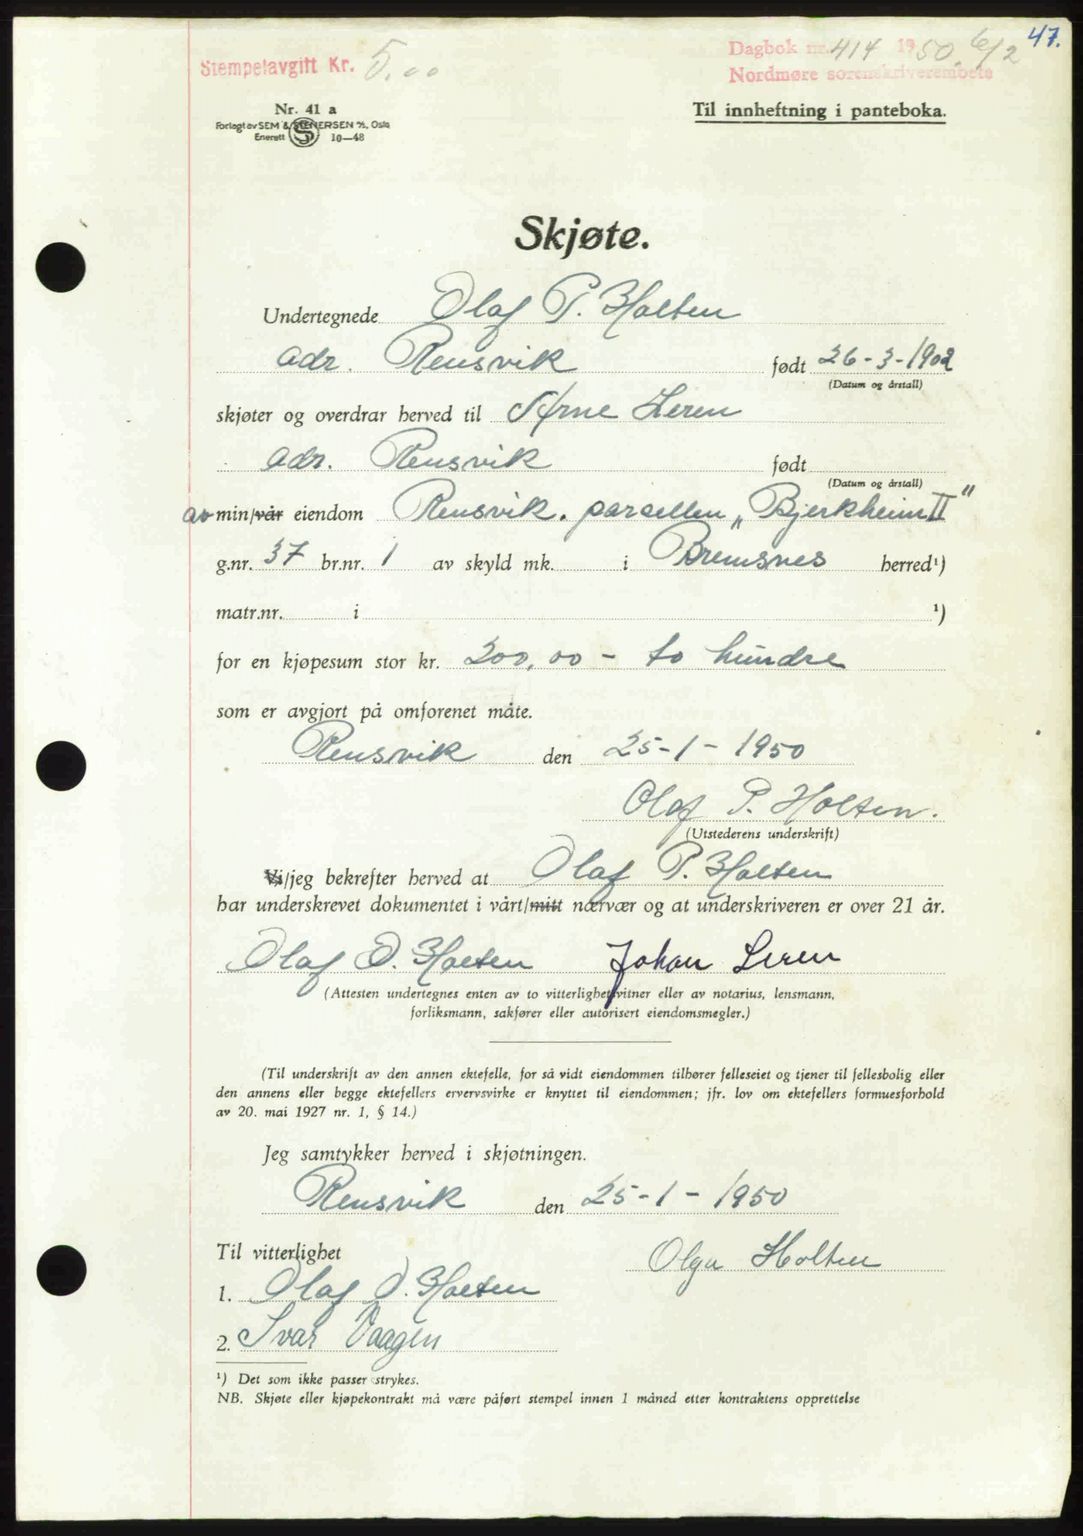 47.
Stempelavgift Kr. 5.00
Dagbok nr. 414 1950. 6/2
Nordmøre sorenskriverembete
Nr. 41 a
Forlagt av SEM & STENERSEN A/S, Oslo
Enerett S 10—48
Til innheftning i panteboka.
Skjøte.
Undertegnede Olaf P. Holten
adr. Rensvik født 26-3-1902
(Datum og årstall)
skjøter og overdrar herved til Arne Leren
adr. Rensvik født
(Datum og årstall)
av min/vår eiendom Rensvik. parsellen „Bjerkheim II"
g.nr. 37 br.nr. 1 av skyld mk. i Bremsnes herred¹)
matr.nr. i ¹)
for en kjøpesum stor kr. 200,00 - to hundre
som er avgjort på omforenet måte.
Rensvik den 25-1-1950
Olaf P. Holten.
(Utstederens underskrift)
Vi/jeg bekrefter herved at Olaf P. Holten
har underskrevet dokumentet i vårt/mitt nærvær og at underskriveren er over 21 år.
Olaf O. Holten Johan Leren
(Attesten undertegnes enten av to vitterlighetsvitner eller av notarius, lensmann,
forliksmann, sakfører eller autorisert eiendomsmegler.)
(Til underskrift av den annen ektefelle, for så vidt eiendommen tilhører felleseiet og tjener til fellesbolig eller
den annens eller begge ektefellers ervervsvirke er knyttet til eiendommen; jfr. lov om ektefellers formuesforhold
av 20. mai 1927 nr. 1, § 14.)
Jeg samtykker herved i skjøtningen.
Rensvik den 25-1-1950
Til vitterlighet Olga Holten
1. Olaf O. Holten
2. Ivar Vaagen
¹) Det som ikke passer strykes.
NB. Skjøte eller kjøpekontrakt må være påført stempel innen 1 måned etter kontraktens opprettelse